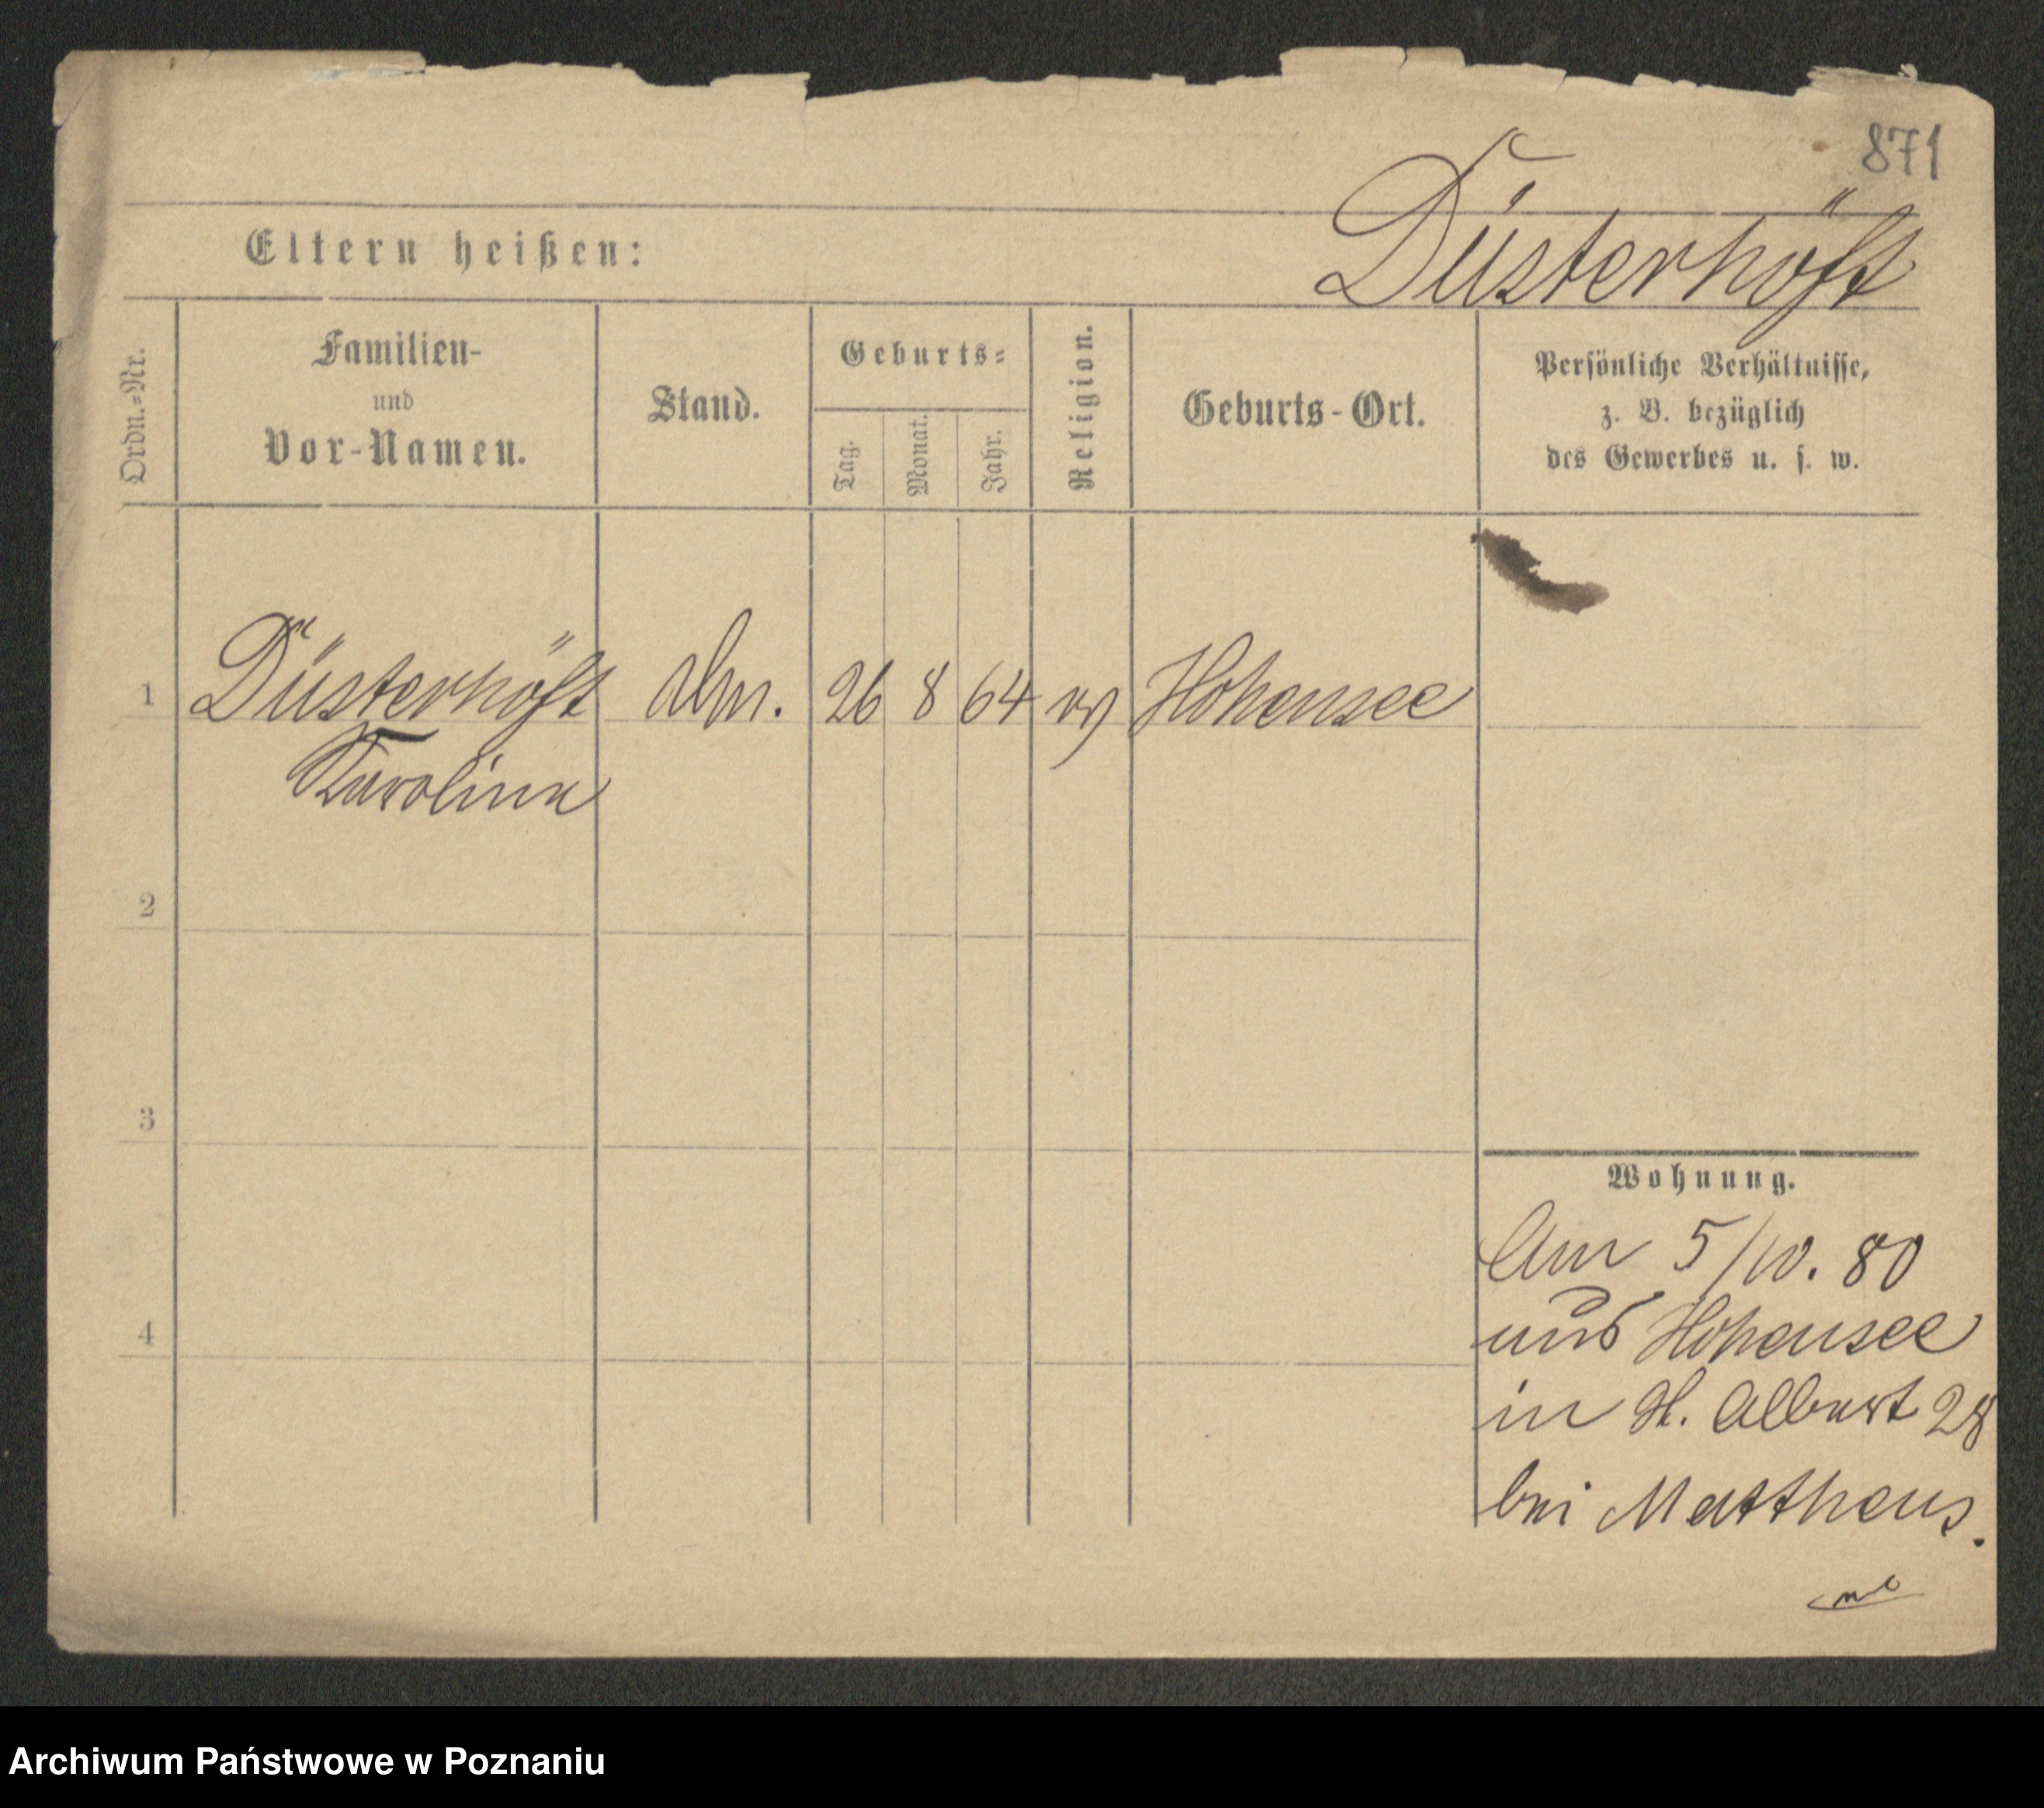 871
Düsterhöft
Eltern heißen:
Ordn.-Nr.
Familien-
und
Vor-Namen.
Stand.
Geburts-
Tag.
Monat.
Jahr.
Religion.
Geburts-Ort.
Persönliche Verhältnisse,
z. B. bezüglich
des Gewerbes u. s. w.
1 Düsterhöft 26 8 64 ev Hohensee
Karolina
2
3
4
Wohnung.
Am 5/10. 80
aus Hohensee
in St. Albert 28
bei Mattheus.
Archiwum Państwowe w Poznaniu